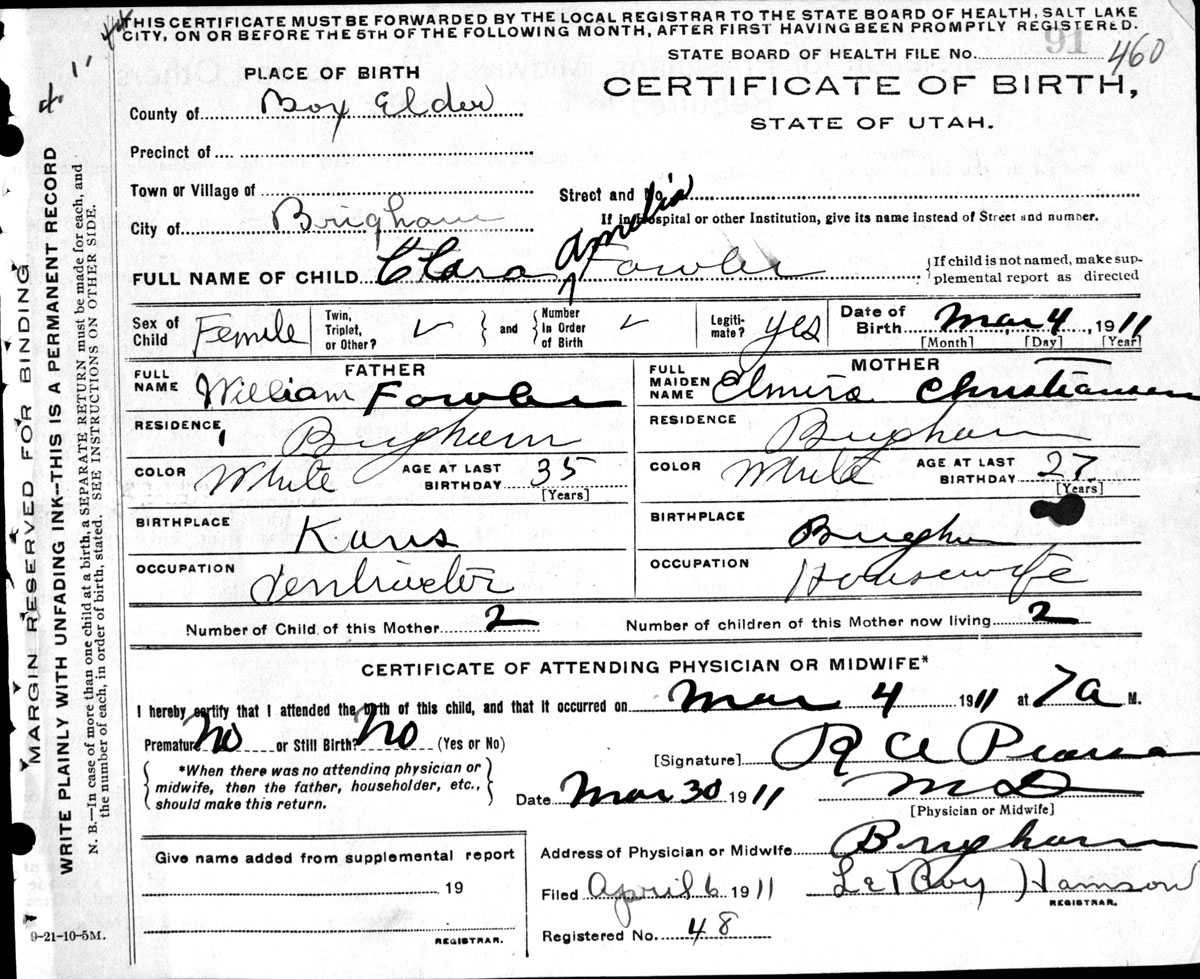 THIS CERTIFICATE MUST BE FORWARDED BY THE LOCAL REGISTRAR TO THE STATE BOARD OF HEALTH, SALT LAKE
CITY, ON OR BEFORE THE 5TH OF THE FOLLOWING MONTH, AFTER FIRST HAVING BEEN PROMPTLY REGISTERED.
STATE BOARD OF HEALTH FILE No. 91 460
CERTIFICATE OF BIRTH,
STATE OF UTAH.
PLACE OF BIRTH
County of Box Elder
Precinct of
Town or Village of
Street and No.
City of Brigham
If in Hospital or other Institution, give its name instead of Street and number.
FULL NAME OF CHILD Clara Amelia Fowler
{If child is not named, make sup-
plemental report as directed
Sex of Child Femele
Twin, Triplet, or Other? ✓ } and { Number In Order of Birth ✓
Legiti-mate? yes
Date of Birth Mar 4, 1911
[Month] [Day] [Year]
FATHER
FULL NAME William Fowler
RESIDENCE Brigham
COLOR White AGE AT LAST BIRTHDAY 35
[Years]
BIRTHPLACE Kans
OCCUPATION
MOTHER
FULL MAIDEN NAME Elmira Christiansen
RESIDENCE Brigham
COLOR White AGE AT LAST BIRTHDAY 27
[Years]
BIRTHPLACE Brigham
OCCUPATION Housewife
Number of Child of this Mother 2 Number of children of this Mother now living 2
CERTIFICATE OF ATTENDING PHYSICIAN OR MIDWIFE*
I hereby certify that I attended the birth of this child, and that it occurred on Mar 4 1911 at 7a M.
Premature No or Still Birth? No (Yes or No)
*When there was no attending physician or
midwife, then the father, householder, etc.,
should make this return.
[Signature] R A Pearse
Date Mar 30 1911 MD
[Physician or Midwife]
Give name added from supplemental report
19
REGISTRAR.
Address of Physician or Midwife Brigham
Filed April 6 1911 LeRoy Hamson
REGISTRAR.
Registered No. 48
MARGIN RESERVED FOR BINDING
WRITE PLAINLY WITH UNFADING INK--THIS IS A PERMANENT RECORD
N. B.—In case of more than one child at a birth, a SEPARATE RETURN must be made for each, and
the number of each, in order of birth, stated. SEE INSTRUCTIONS ON OTHER SIDE.
9-21-10-5M.